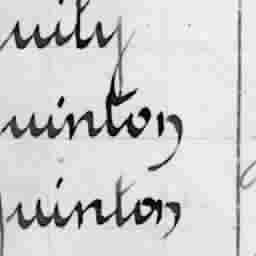 uily
uinton
uinton